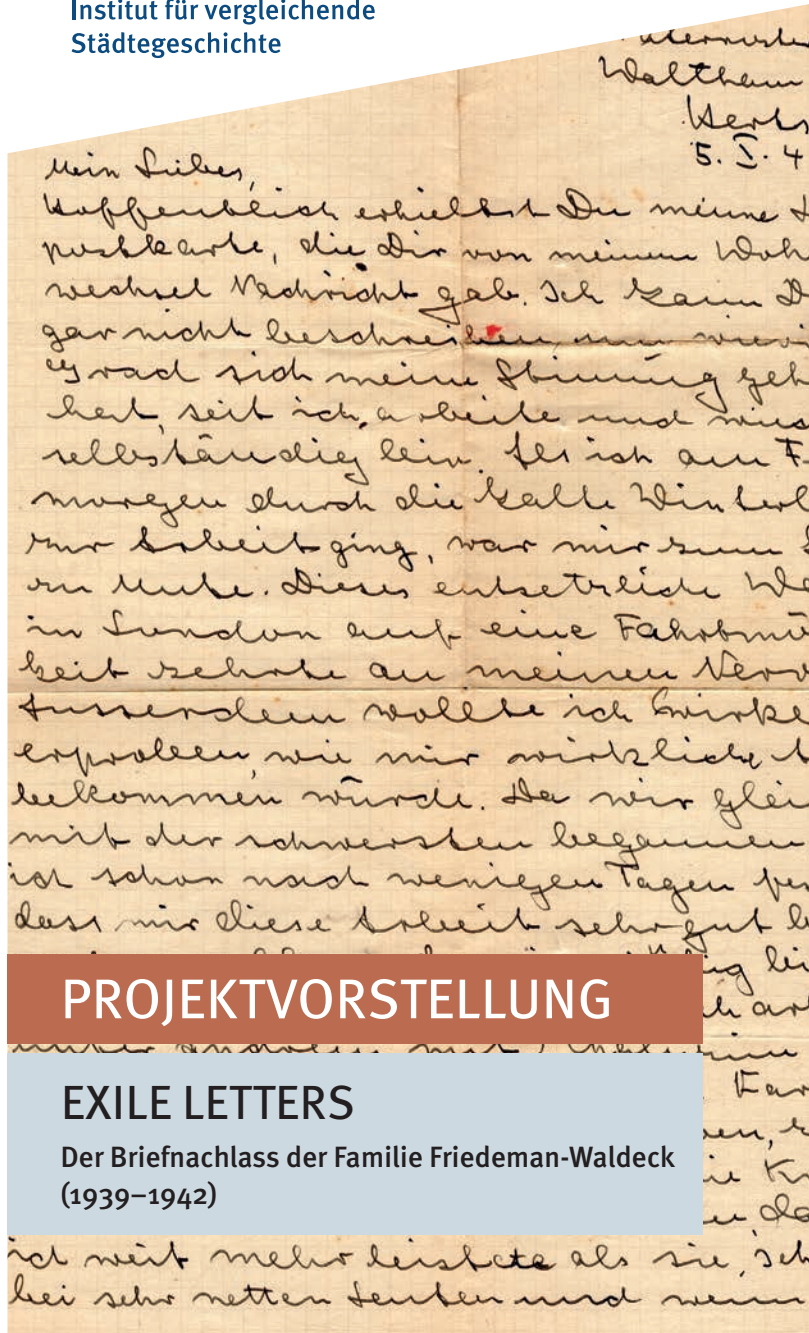 Institut für vergleichende
Städtegeschichte
Waltham
Herts
5. I. 4
Mein Liebes,
Hoffentlich erhieltst Du meine
postkarte, die Dir von meinem Woh
wechsel Nachricht gab. Ich kann D
gar nicht beschreiben, um wievi
Grad sich meine Stimmung geh
hat, seit ich arbeite und
selbständig bin. Als ich am F
morgen durch die kalte Winterl
zur Arbeit ging, war mir zum
zu Mute. Dieses entsetzliche Wa
in London auf eine Fahrtmö
keit zehrte an meinen Nerv
Ausserdem wollte ich
erproben, wie mir wirkliche A
bekommen würde. Da wir glei
mit der schwersten begannen
ich schon nach wenigen Tagen
dass mir diese Arbeit sehr gut b
PROJEKTVORSTELLUNG
EXILE LETTERS
Der Briefnachlass der Familie Friedeman-Waldeck
(1939–1942)
ich weit mehr leistete als sie. Ich
bei sehr netten Leuten und wenn